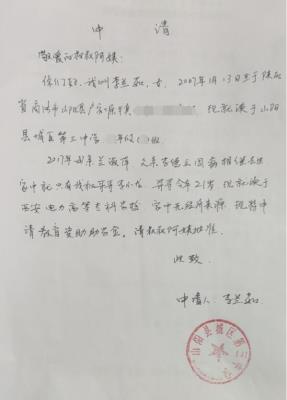 申 请
敬爱的叔叔阿姨:
你们好,我叫李兰茹,女,2007年1月13日生于陕西
省商洛市山阳县户家塬镇 现就读于山阳
县城区第三中学 年级( )班
2017年母亲兰淑萍,父亲 因病相继去世
家中就只有我和哥哥李小龙,哥哥今年21岁,现就读于
西安电力高等专科学校,家中无经济来源,现特申
请教育资助助学金,请叔叔阿姨批准。
此致
申请人:李兰茹
山阳县城区第三